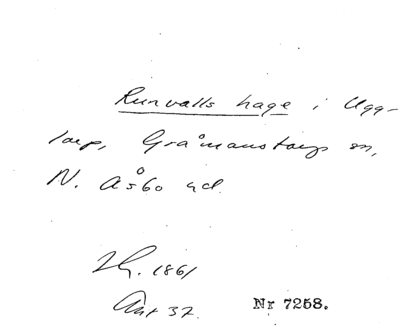 Runvalls hage i Ugg-
larp, Gråmanstorps sn,
N. Åsbo hd.
1861
Ant 37.
Nr 7258.